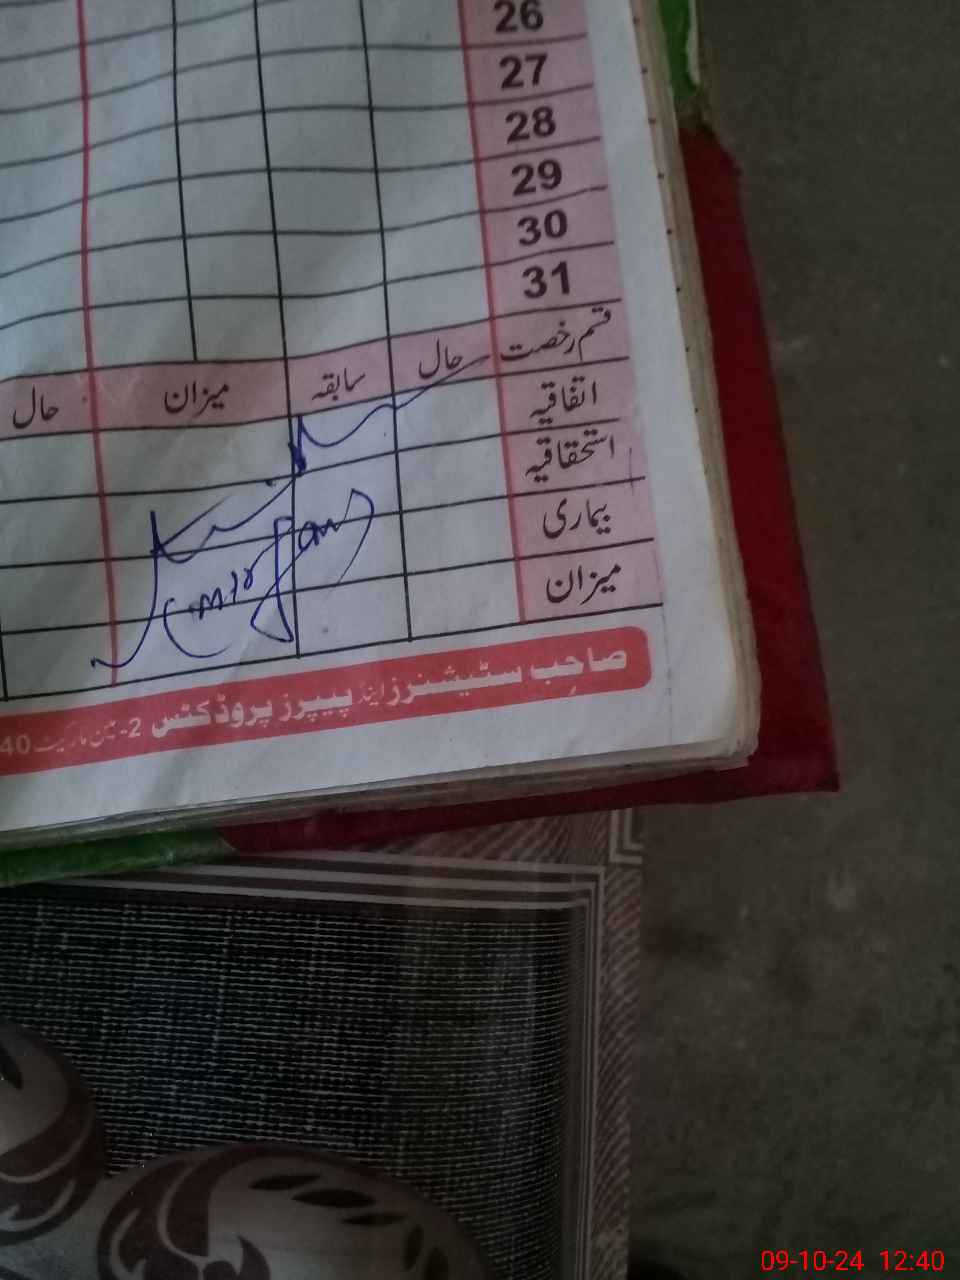 26
27
28
29
30
31
قسم رخصت
حال
سابقہ
میزان
حال
اتفاقیہ
استحقاقیہ
بیماری
میزان
صاحب سٹیشنرز اینڈ پیپرز پروڈکٹس 2- مین مارکیٹ 40
09-10-24 12:40